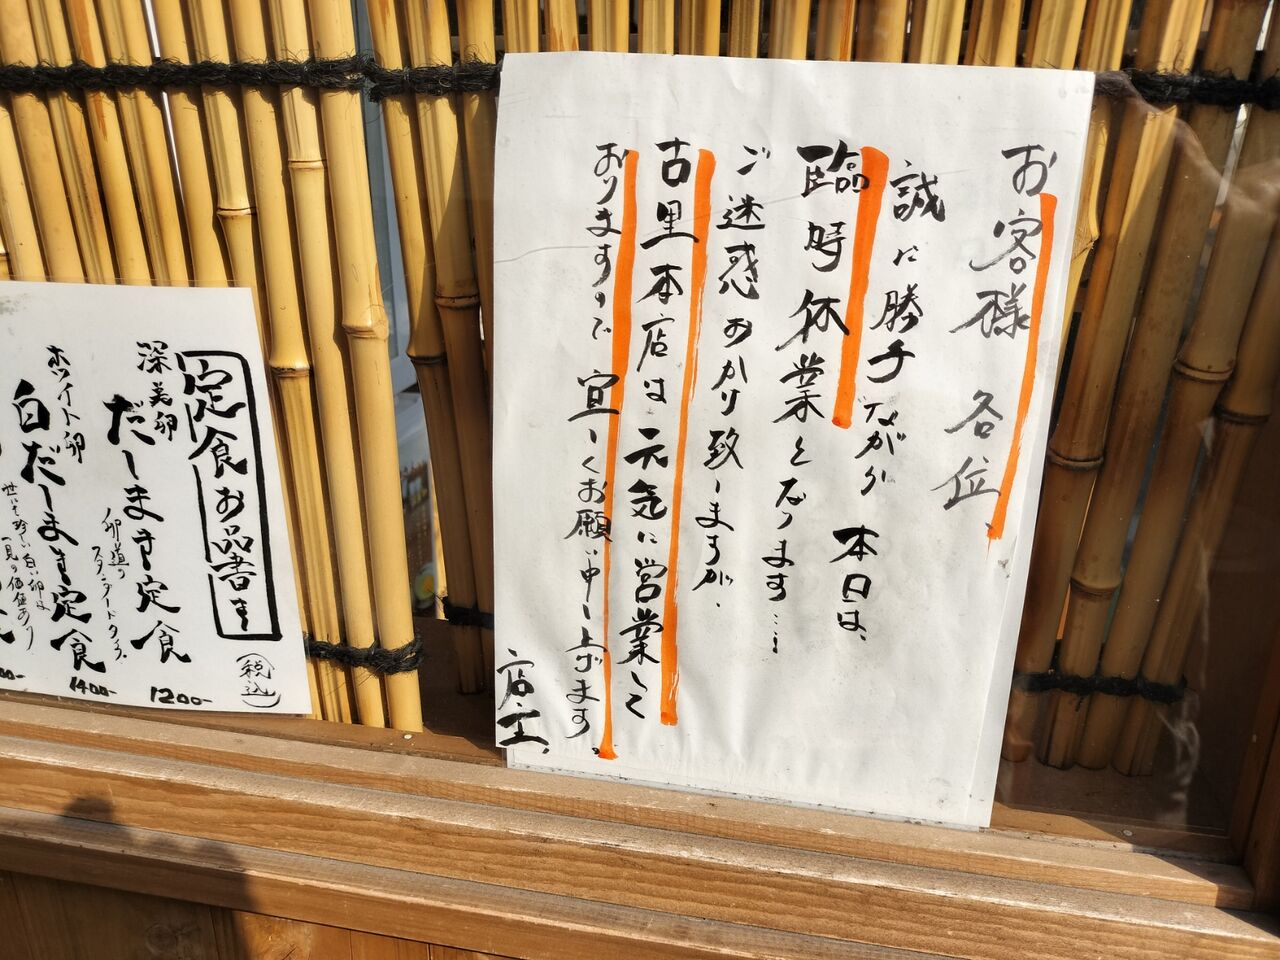 お客様 各位、
誠に勝手ながら 本日は、
臨時休業となります…
ご迷惑おかけ致しますが、
古里本店は元気に営業して
おりますので宜しくお願い申し上げます。
店主、
定食お品書き
税込
深美卵
だしまき定食
卵道の
スタンダードタイプ。
1200-
ホワイト卵
白だしまき定食
世にも珍しい白い卵は
一見の価値あり
1400-